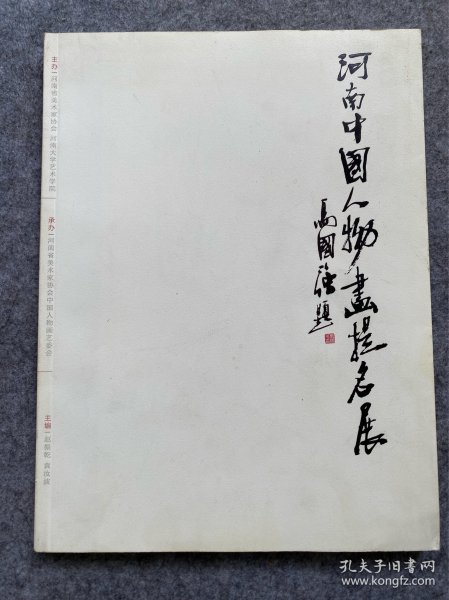 河南中國人物畫提名展
馬國強題
主办|河南省美术家协会 河南大学艺术学院
承办|河南省美术家协会中国人物画艺委会
主编|赵振乾 袁汝波
孔夫子旧书网
www.kongfz.com